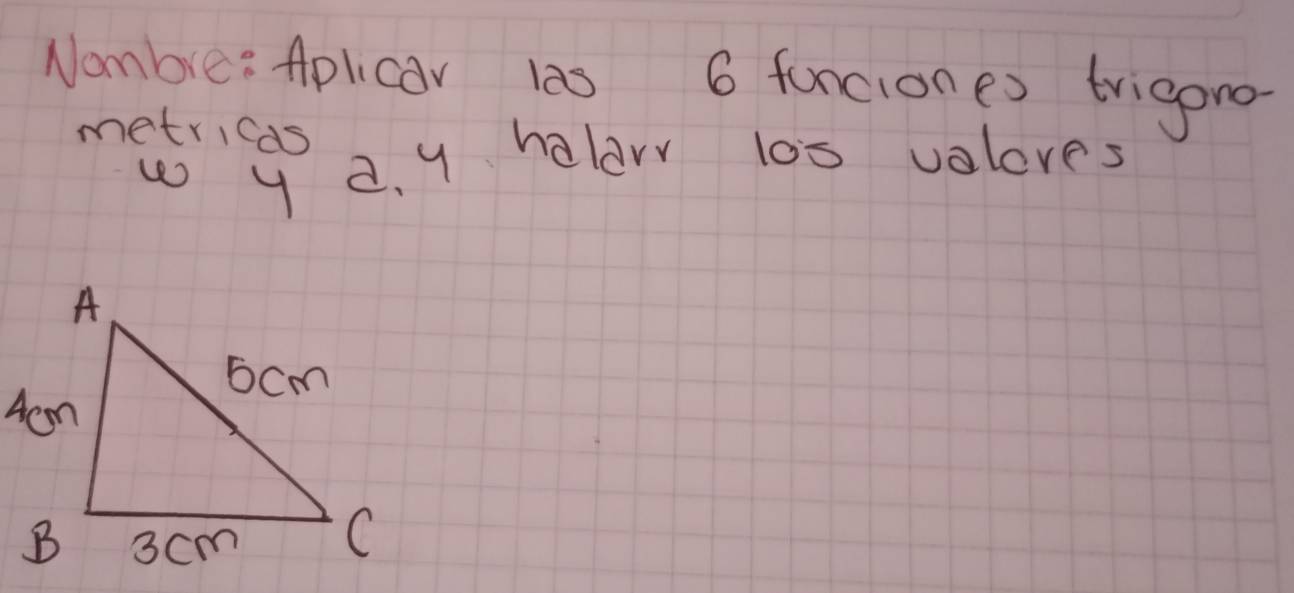 Nombre: Aplicar las 6 funciones trigono-
metricas
w y a. y halarr los valores
A
5cm
4cm
B 3cm C